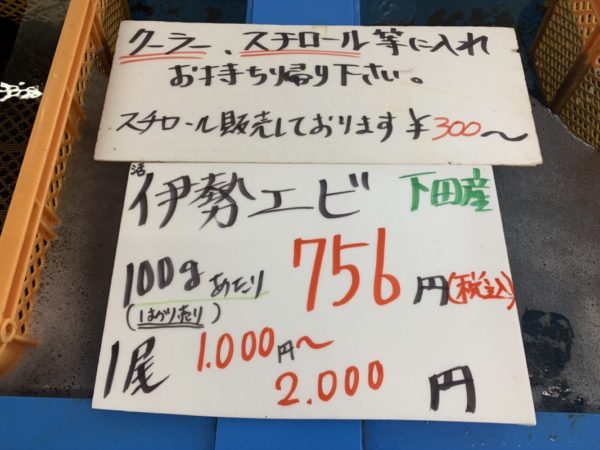 クーラー、スチロール等に入れ
お持ち帰り下さい。
スチロール販売しております ¥300〜
活
伊勢エビ 下田産
100gあたり 756円(税込)
(はかり売り)
1尾 1.000円〜
2.000円